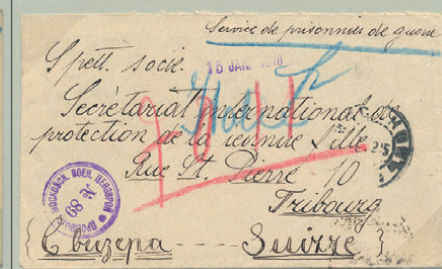 Service de prisonnier de guerre
Spett. socié.
15 JAN. 1918
Secrétariat international de
protection de la jeunne fille
Rue St. Pierre 10
Fribourg
МОСКОВСК. ВОЕН.
№ 89
{Свизера ---- Suizze}